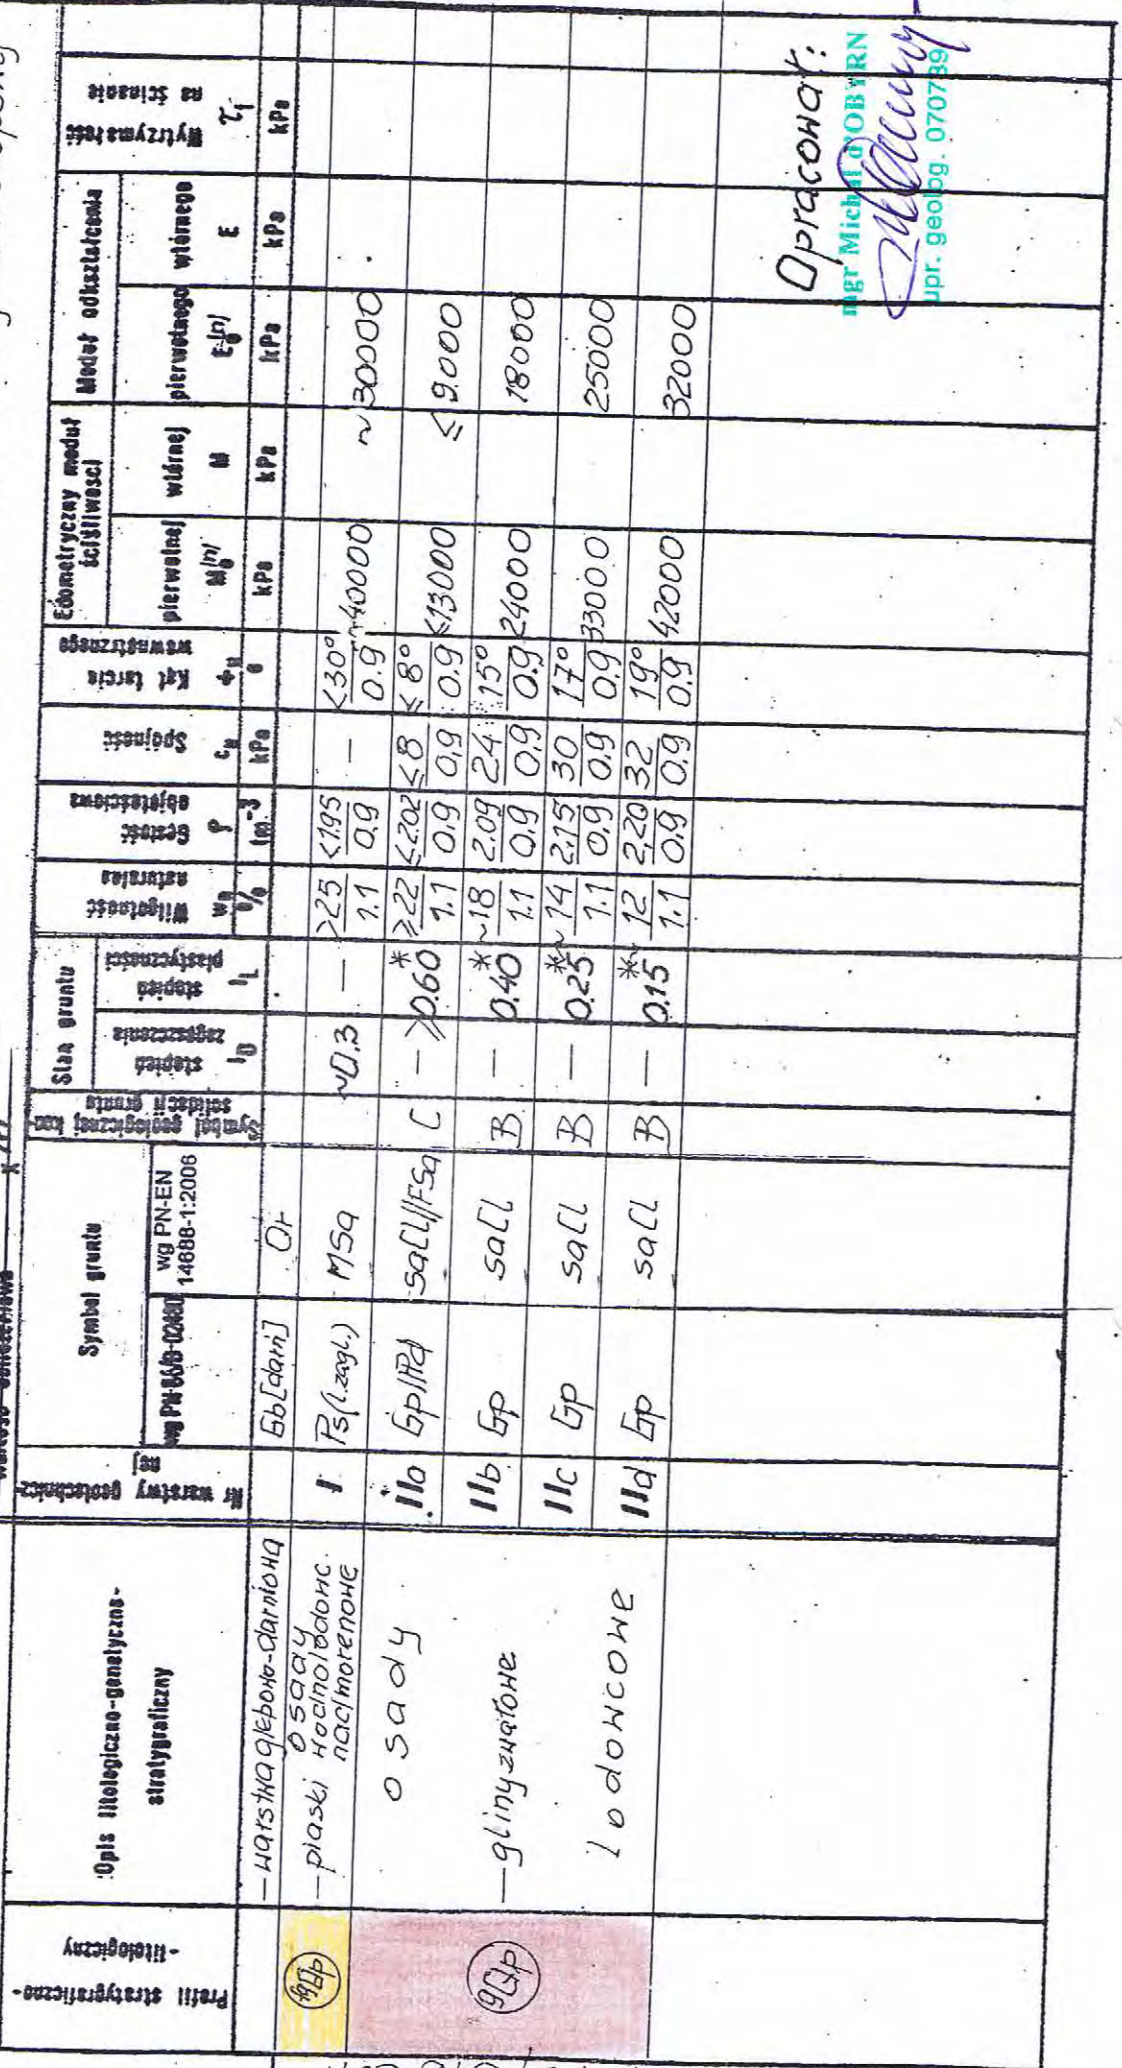 Profil stratygraficzno-
-litologiczny
Opis litologiczno-genetyczno-
stratygraficzny
Nr warstwy geotechnicz
nej
Symbol gruntu
wg PN-86/B-02480
wg PN-EN
14688-1:2006
Symbol geologicznej kon
solidacji gruntu
Stan gruntu
stopień
zagęszczenia
I_D
stopień
plastyczności
I_L
Wilgotność
naturalna
w_n
%
Gęstość
objętościowa
ρ
tm⁻³
Spójność
c_u
kPa
Kąt tarcia
wewnętrznego
Φ_u
°
Edometryczny moduł
ściśliwości
pierwotnej
M₀⁽ⁿ⁾
kPa
wtórnej
M
kPa
Moduł odkształcenia
pierwotnego
E₀⁽ⁿ⁾
kPa
wtórnego
E
kPa
Wytrzymałość
na ścinanie
τ_f
kPa
— warstwa glebowo-darniowa
Gb[darń] Or
— piaski osady
wodnolodowc.
nadmorenowe
I Ps(l.zagl.) MSa ~0.3 — >25 <1.95 — <30° ~40000 ~30000
1.1 0.9 0.9
osady
IIa Gp//Pd saCl//FSa C — ≥0.60* ≥22 ≤2.02 ≤8 ≤8° ≤13000 ≤9000
1.1 0.9 0.9 0.9
gQp
— gliny zwałowe
IIb Gp saCl B — 0.40* ~18 2.09 24 15° 24000 18000
1.1 0.9 0.9 0.9
IIc Gp saCl B — 0.25* ~14 2,15 30 17° 33000 25000
1.1 0.9 0.9 0.9
lodowcowe
IId Gp saCl B — 0.15* ~12 2,20 32 19° 42000 32000
1.1 0.9 0.9 0.9
Opracował:
mgr Michał d'OBYRN
upr. geolog. 070789